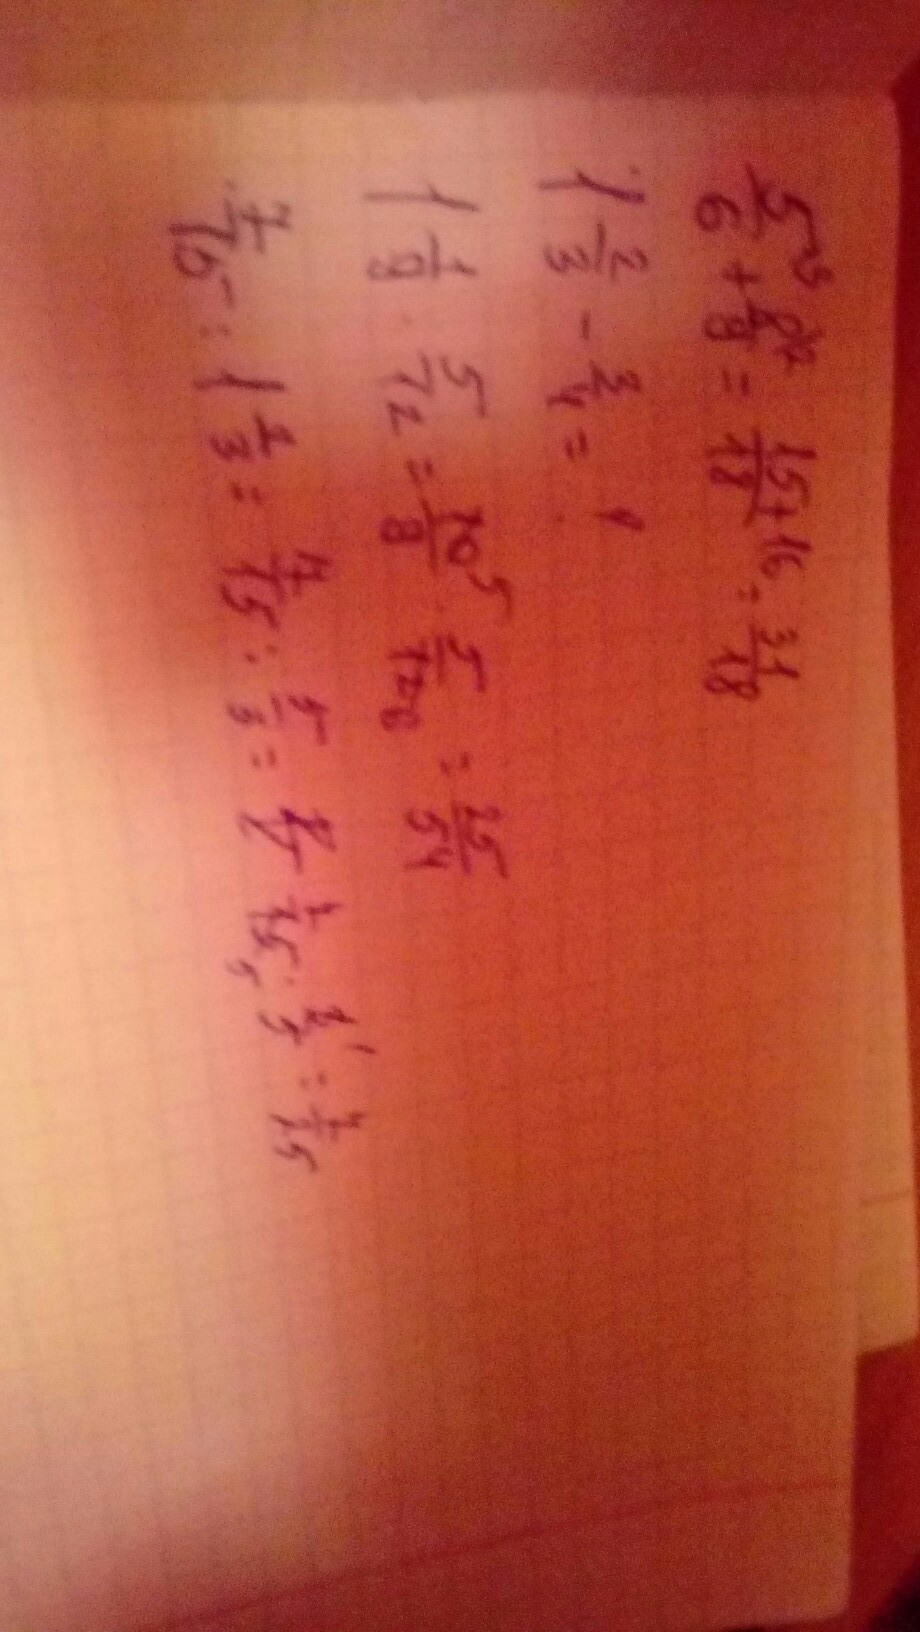 5/6 + 8/9 = 15+16/18 = 31/18
1 2/3 - 3/4 = 1
1 1/9 · 5/12 = 10/9 · 5/12 = 25/54
7/15 : 1 2/3 = 7/15 : 5/3 = 7/15 · 3/5 =